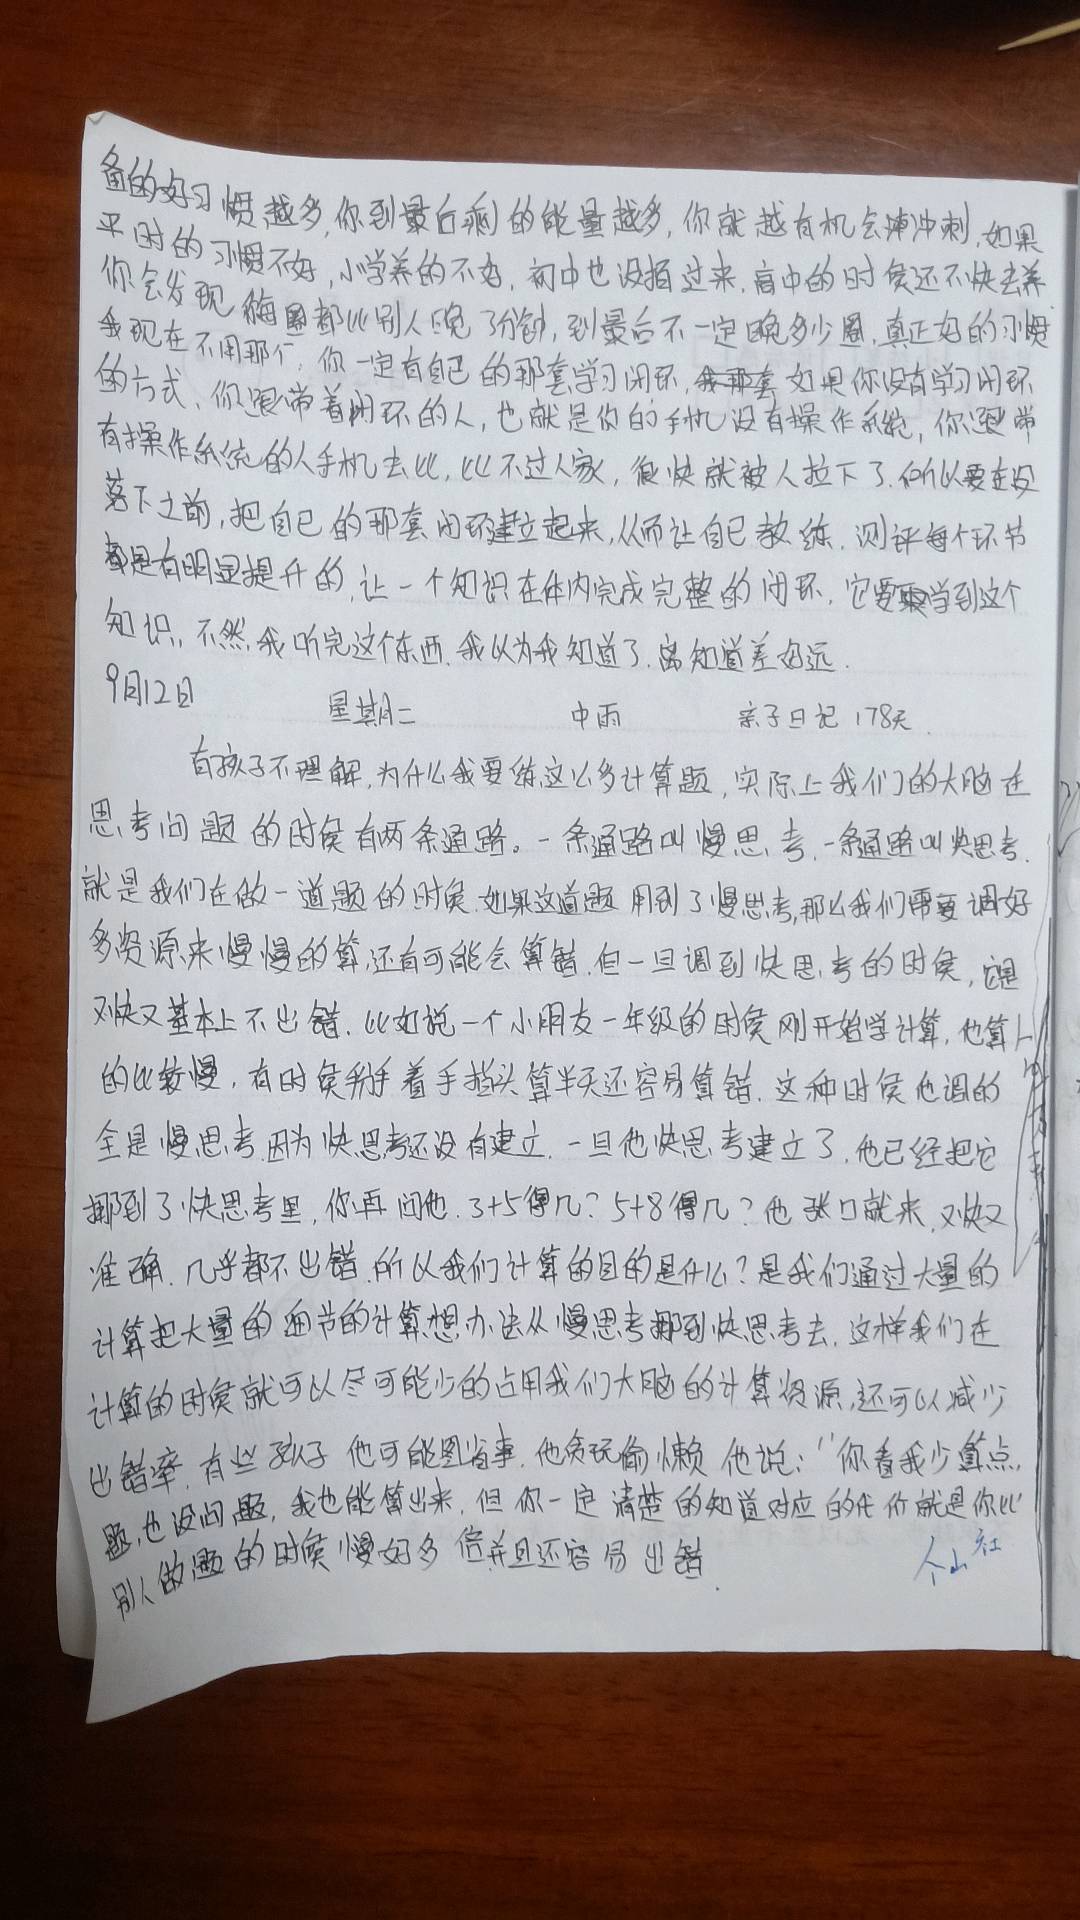 备的好习惯越多,你到最后剩的能量越多,你就越有机会冲刺,如果
平时的习惯不好,小学养的不好,初中也没掰过来,高中的时候还不快去养
你会发现每圈都比别人晚3分钟,到最后不一定晚多少圈,真正好的习惯
我现在不用那个,你一定有自己的那套学习闭环,如果你没有学习闭环
的方式,你跟带着闭环的人,也就是你的手机没有操作系统,你跟带
有操作系统的人手机去比,比不过人家,很快就被人拉下了.所以要在没
落下之前,把自己的那套闭环建立起来,从而让自己教、练、测评每个环节
都是有明显提升的,让一个知识在体内完成完整的闭环,它要学到这个
知识,不然,我听完这个东西,我以为我知道了,离知道差好远.
9月12日 星期二 中雨 亲子日记178天
有孩子不理解,为什么我要练这么多计算题,实际上我们的大脑在
思考问题的时候有两条通路。一条通路叫慢思考,一条通路叫快思考.
就是我们在做一道题的时候,如果这道题用到了慢思考,那么我们需要调好
多资源来慢慢的算,还有可能会算错,但一旦调到快思考的时候,它是
又快又基本上不出错.比如说一个小朋友一年级的时候刚开始学计算,他算
的比较慢,有时候掰着手指头算半天还容易算错.这种时候他调的
全是慢思考,因为快思考还没有建立.一旦他快思考建立了,他已经把它
挪到了快思考里,你再问他.3+5得几?5+8得几?他张口就来,又快又
准确.几乎都不出错.所以我们计算的目的是什么?是我们通过大量的
计算把大量的细节的计算想办法从慢思考挪到快思考去.这样我们在
计算的时候就可以尽可能少的占用我们大脑的计算资源,还可以减少
出错率.有些孩子他可能图省事.他贪玩偷懒他说:"你看我少算点
题,也没问题,我也能算出来,但你一定清楚的知道对应的代价就是你比
别人做题的时候慢好多倍并且还容易出错.